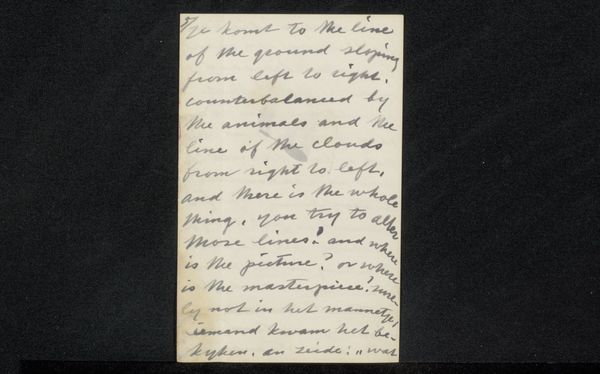 5/ je komt to the line
of the ground sloping
from left to right,
counterbalanced by
the animals and the
line of the clouds
from right to left,
and there is the whole
thing, you try to alter
those lines? and where
is the picture? or where
is the masterpiece? sure-
ly not in het mannetje,
iemand kwam het be-
kyken, an zeide: "wat